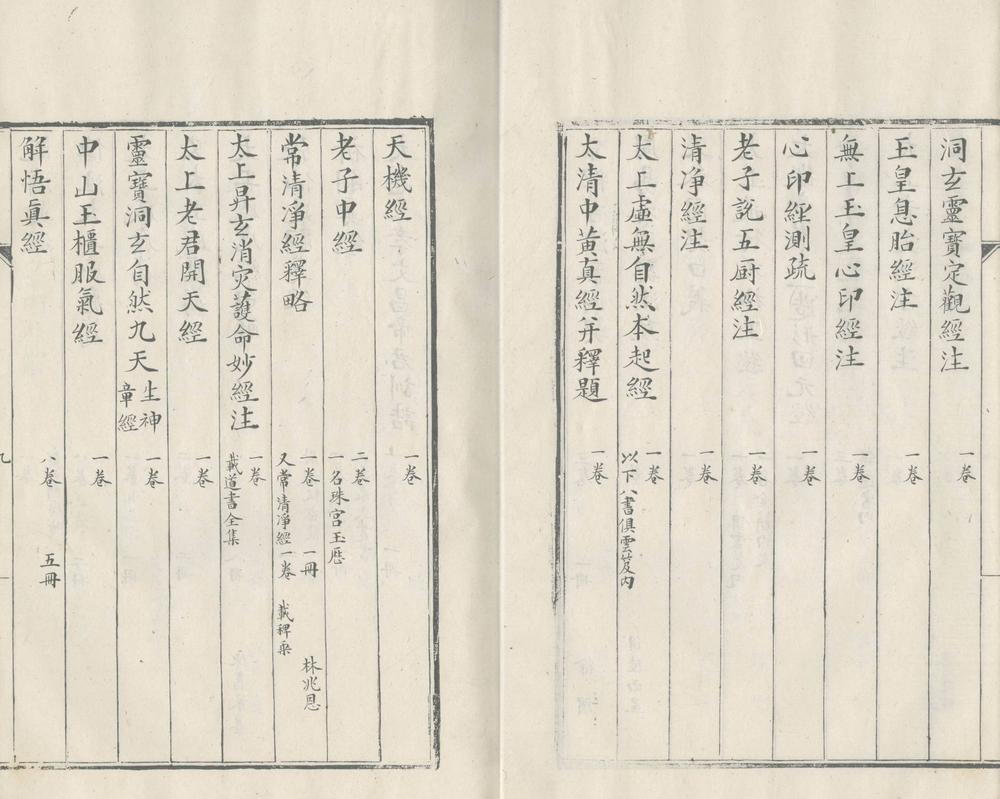 洞玄靈寶定觀經注 一卷
玉皇息胎經注 一卷
無上玉皇心印經注 一卷
心印經測疏 一卷
老子說五厨經注 一卷
清净經注 一卷
太上虛無自然本起經 一卷 以下八書俱雲笈内
太清中黄真經并釋題 一卷
天機經 一卷
老子中經 二卷 一名珠宮玉歷
常清淨經釋略 一卷 一冊 林兆恩 又常清淨經一卷 載稗乘
太上昇玄消灾護命妙經注 一卷 載道書全集
太上老君開天經 一卷
靈寶洞玄自然九天生神章經 一卷
中山玉櫃服氣經 一卷
解悟眞經 八卷 五冊
九